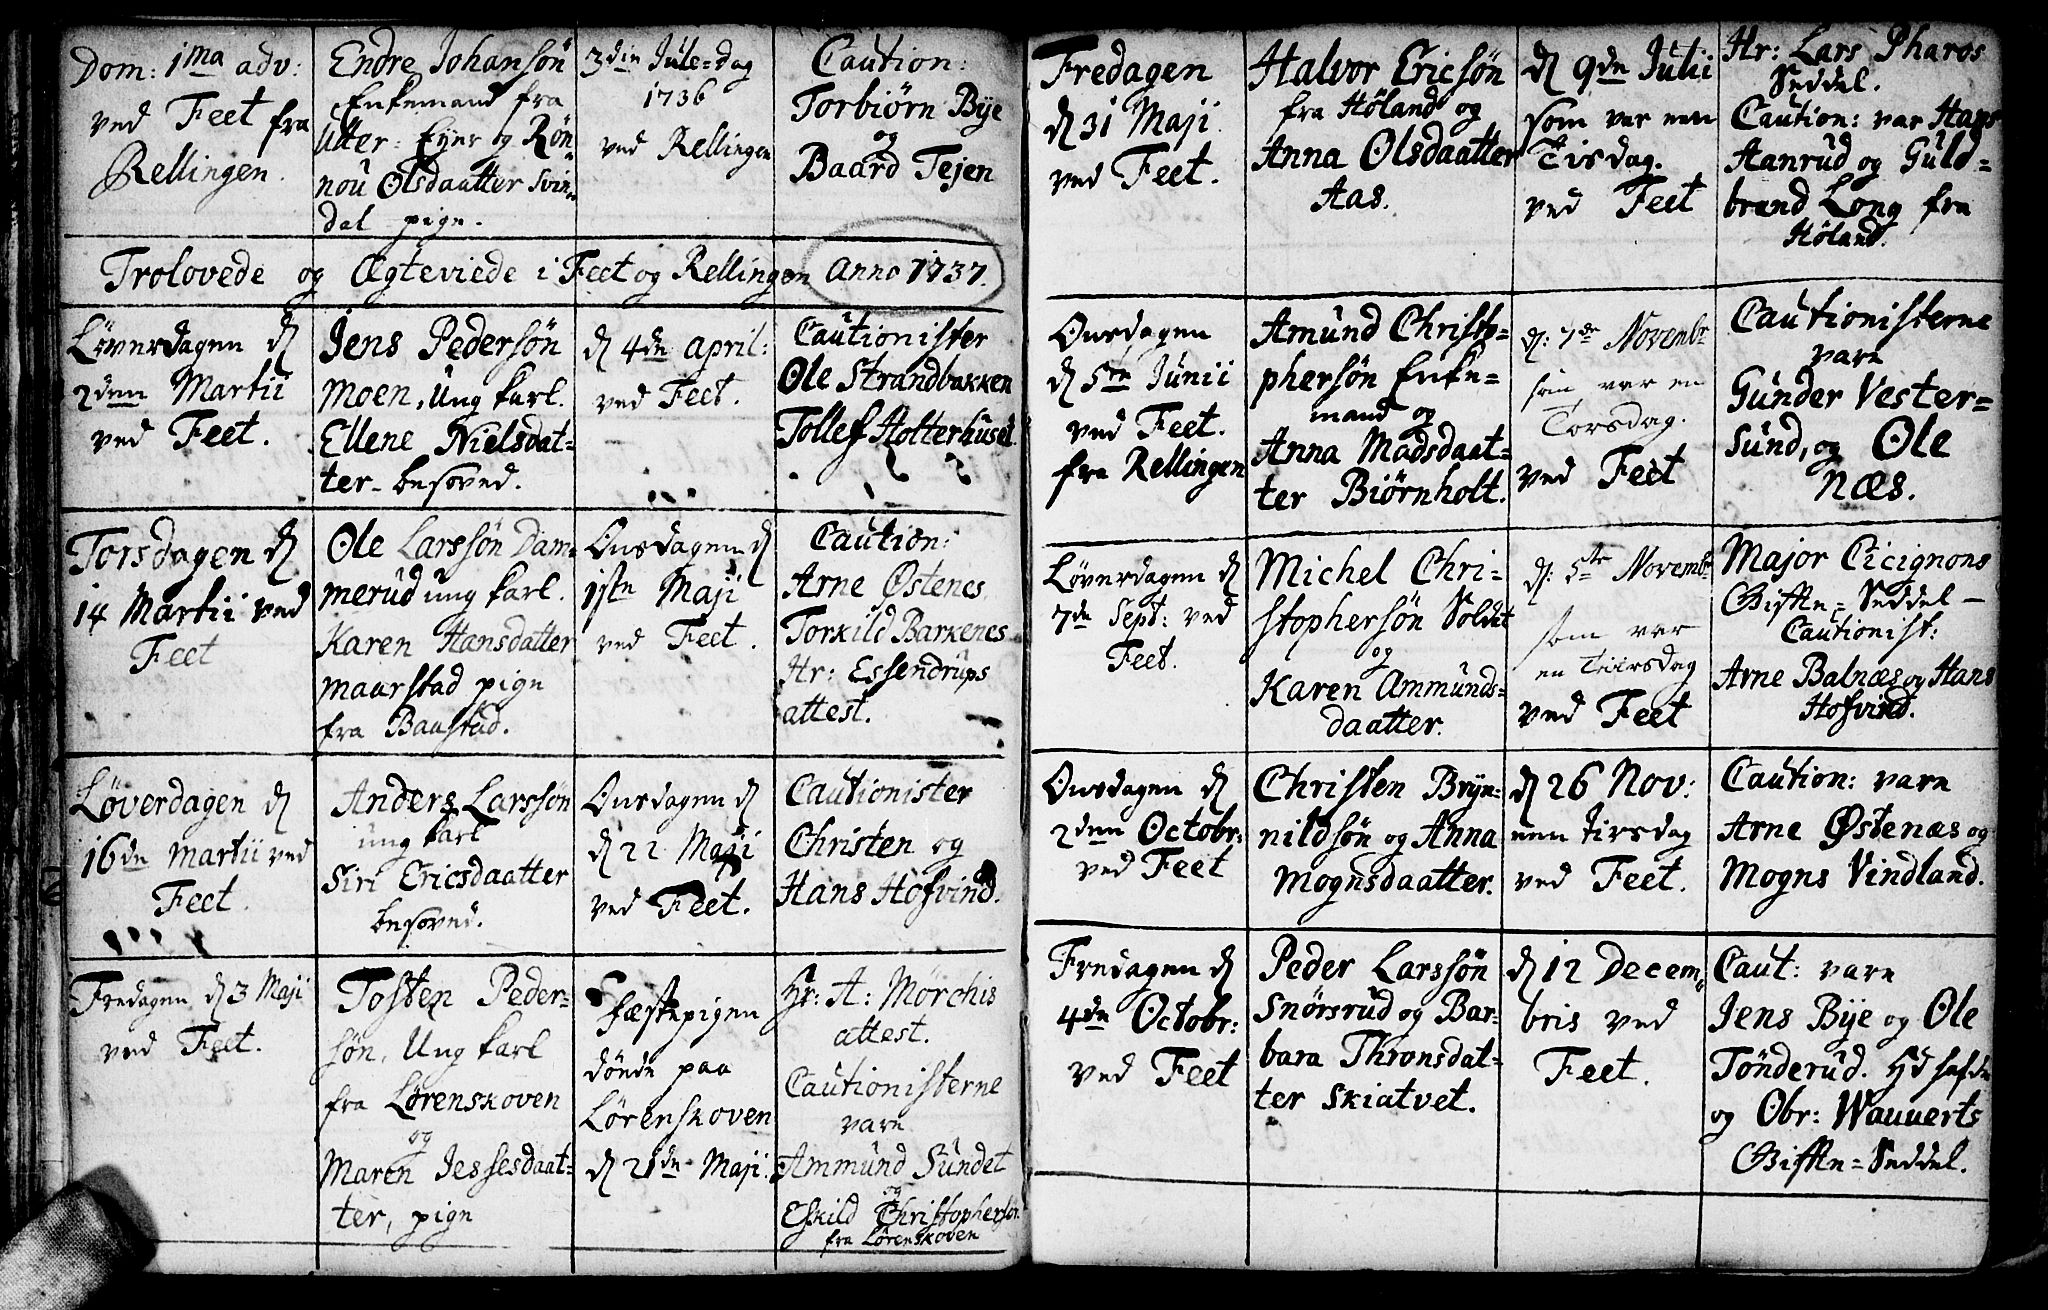 Dom: 1ma adv:
ved Feet fra
Rellingen.
Endre Johansøn
Enkemand fra
Utter= Eyer og Røn=
nou Olsdaatter Svin=
dal pige.
3die Jule=dag
1736
ved Rellingen
Caution:
Torbiørn Bye
og
Baard Tejen
Trolovede og Ægteviede i Feet og Rellingen Anno 1737.
Løverdagen d
2den Martii
ved Feet.
Jens Pedersøn
Moen, Ung karl.
Ellene Nielsdat=
ter besoved.
d 4de April:
ved Feet.
Cautionister
Ole Strandbakken
Tollef Hotterhuset
Torsdagen d
14 Martii ved
Feet
Ole Larssøn Dam=
merud ung karl.
Karen Hansdatter
Maarstad pige
fra Baastad.
Onsdagen d
1ste Maji
ved Feet.
Caution:
Arne Østenes
Torkild Barkenes
Hr: Essendrups
attest.
Løverdagen d
16de Martii ved
Feet.
Anders Larssøn
ung karl
Siri Ericsdaatter
besoved.
Onsdagen d
d 22 Maji
ved Feet.
Cautionister
Christen og
Hans Hofvind.
Fredagen d 3 Maji
ved Feet.
Tosten Peder=
søn, Ung karl
fra Lørenskoven
og
Maren Jessesdaat=
ter, pige
Fæstepigen
døde paa
Lørenskoven
d 21de Maji.
Hr: A: Mørchis
attest.
Cautionisterne
vare
Ammund Sundet
og
Eskild Christophersøn
fra Lørenskoven
Fredagen
d 31 Maji
ved Feet.
Halvor Ericsøn
fra Høland og
Anna Olsdaatter
Aas.
d 9de Julii
som var een
Tisdag.
ved Feet
Hr: Lars Pharos
Seddel.
Caution: var Hans
Aanrud og Guld=
brand Long fra
Høland.
Onsdagen
d 5te Junii
ved Feet.
fra Rellingen
Amund Christo=
phersøn Enke=
mand og
Anna Madsdaat=
ter Biørnholt.
d: 7de Novembr
som var en
Torsdag.
ved Feet
Cautionisterne
vare
Gunder Vester=
sund, og Ole
Næs.
Løverdagen d
7de Sept: ved
Feet.
Michel Chri=
stophersøn Soldat
og
Karen Ammunds=
daatter.
d: 5te Novembr
som var
en Tiirsdag
ved Feet
Major Cicignons
Gifte=Seddel
Cautionist:
Arne Balnæs og Hans
Hofvind.
Onsdagen d
2den Octobr:
ved Feet
Christen Bryn=
nildsøn og Anna
Mognsdaatter.
d 26 Nov:
een Tirsdag
ved Feet.
Caution: vare
Arne Østenæs og
Mogns Vindland.
Fredagen d
4de Octobr:
ved Feet
Peder Larssøn
Snørsrud og Bar=
bara Thronsdat=
ter Skiatvet.
d 12 Decem=
bris ved
Feet.
Caut: vare
Jens Bye og Ole
Tønderud. Hd hafde
og Obr: Wauverts
Gifte=Seddel.